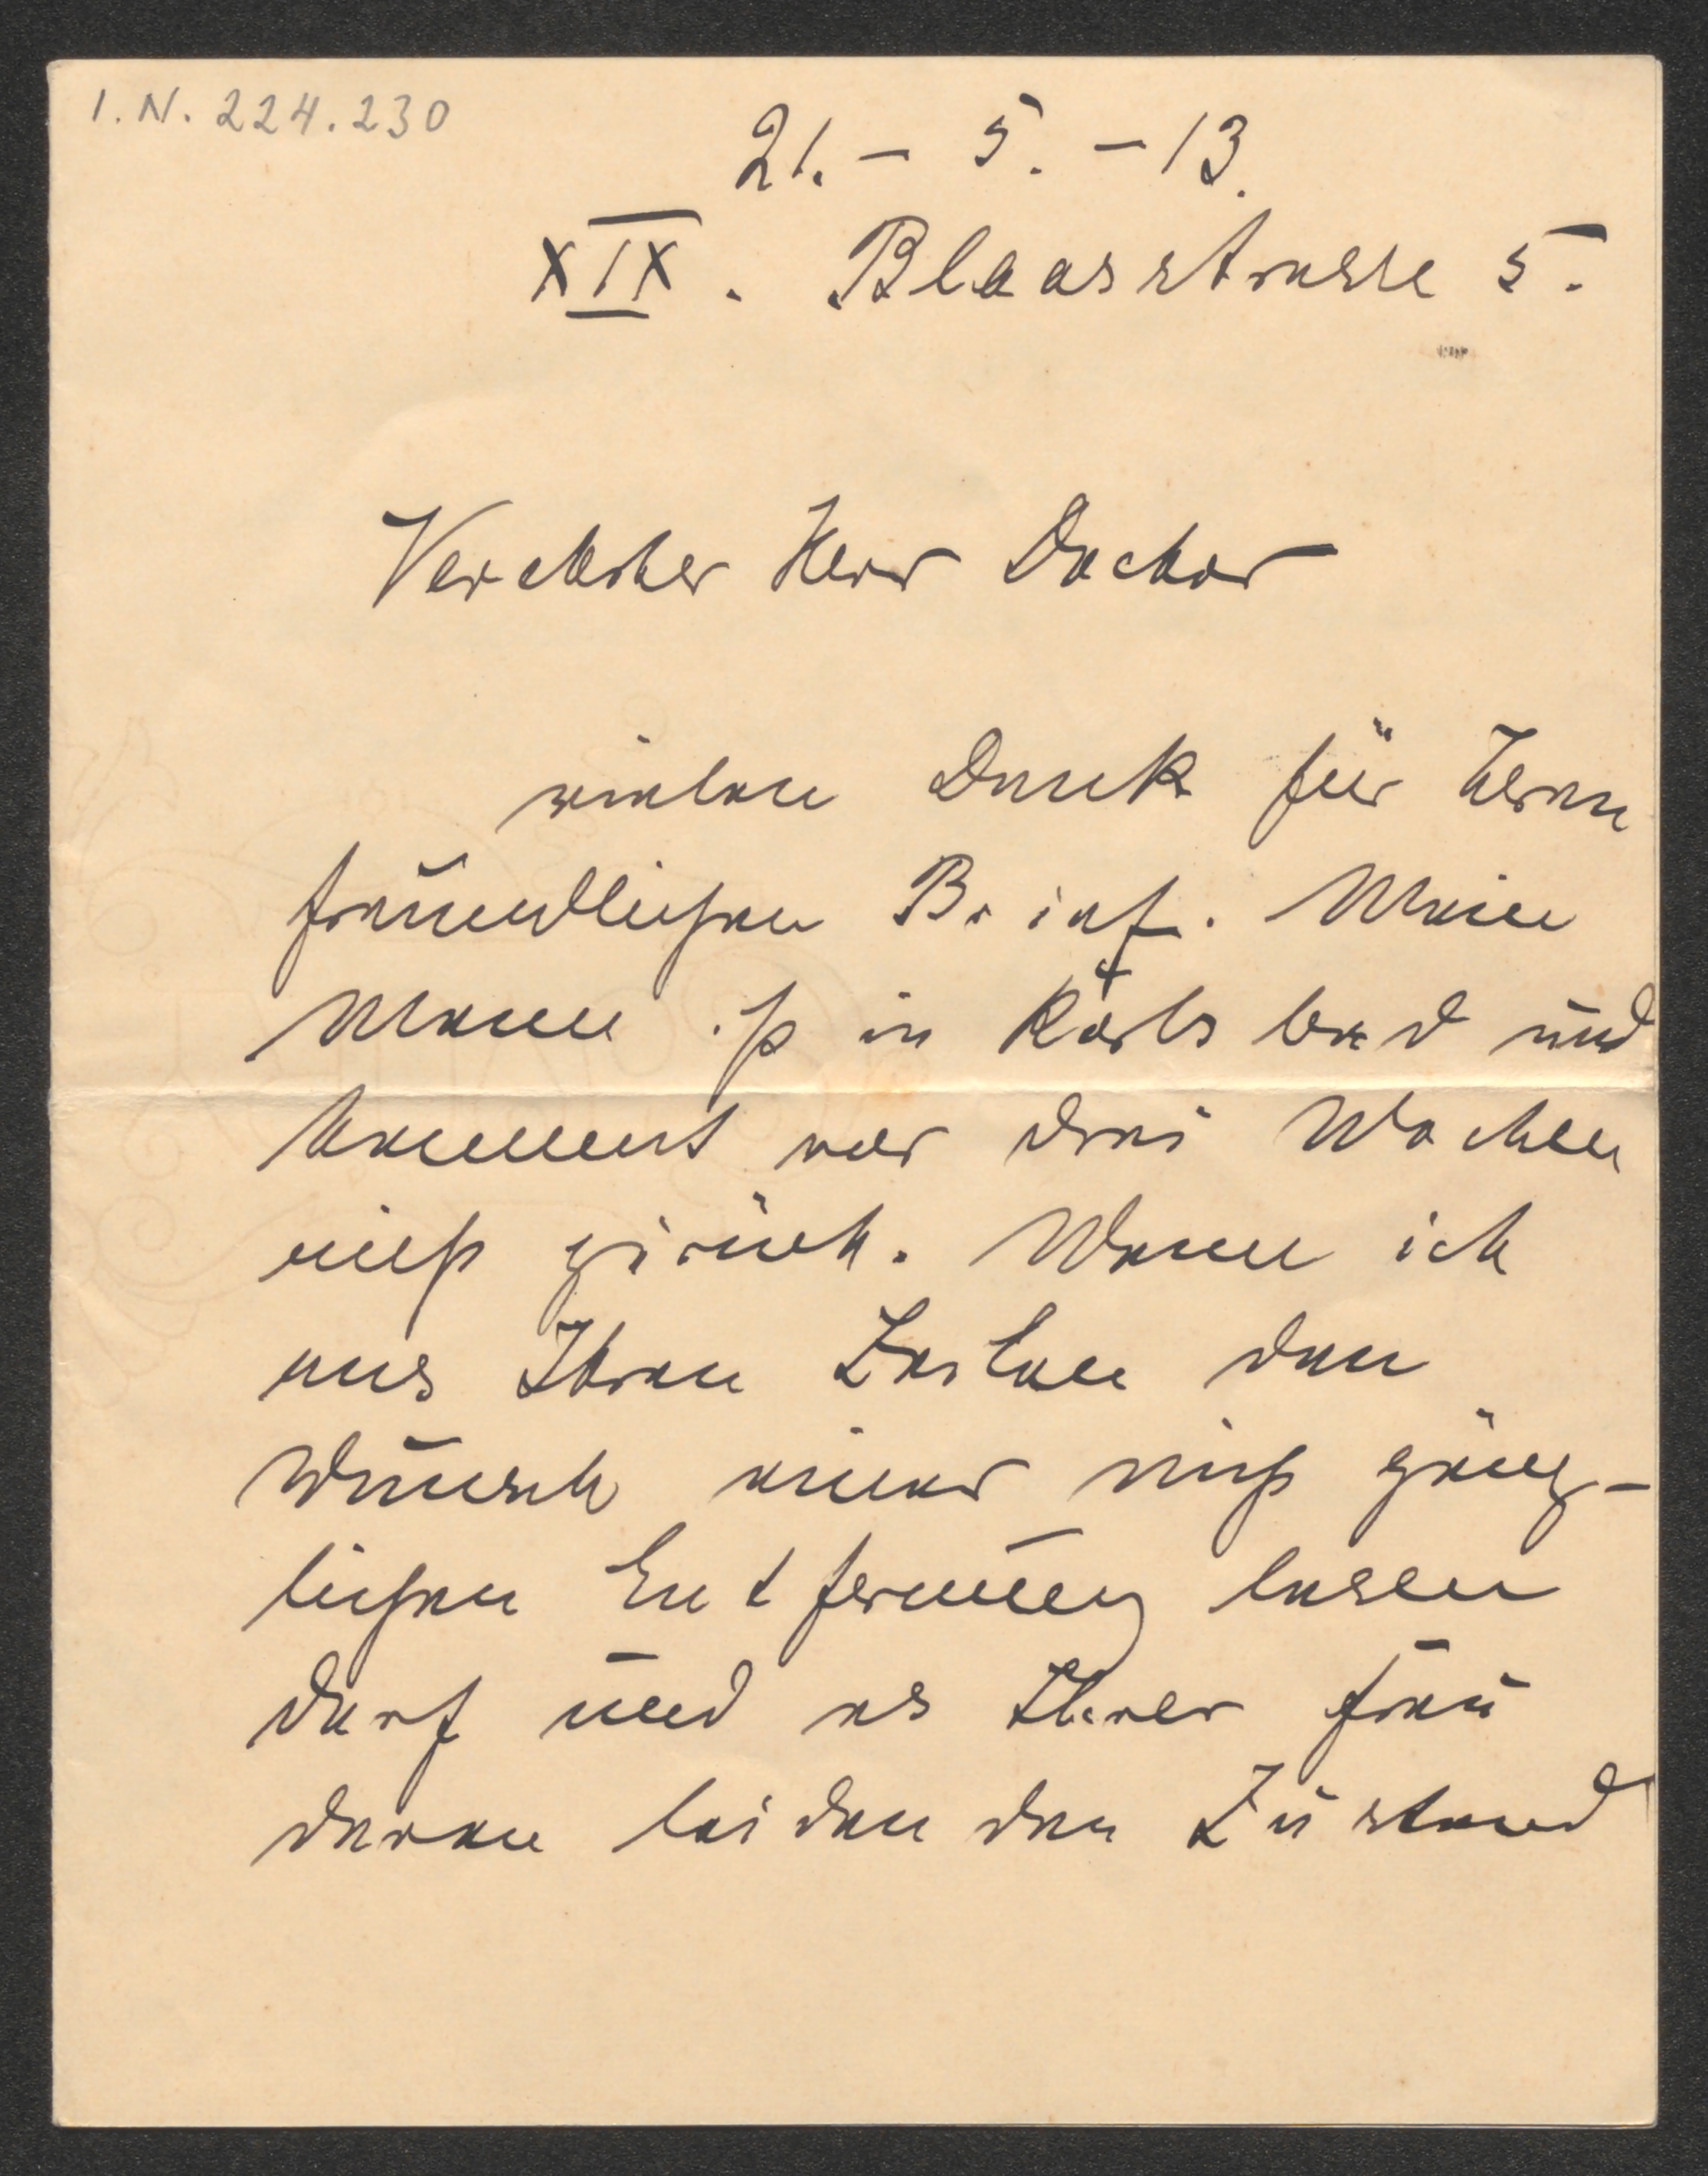 I.N. 224.230
21. – 5. – 13.
XIX. Blaasstrasse 5.
Verehrter Herr Doctor
vielen Dank für Ihren
freundlichen Brief. Mein
Mann ist in Karlsbad und
kommt vor drei Wochen
nicht zurück. Wenn ich
aus Ihren Zeilen den
Wunsch einer nicht gänz-
lichen Entfernung lesen
darf und es Ihrer Frau
deren leidenden Zustand